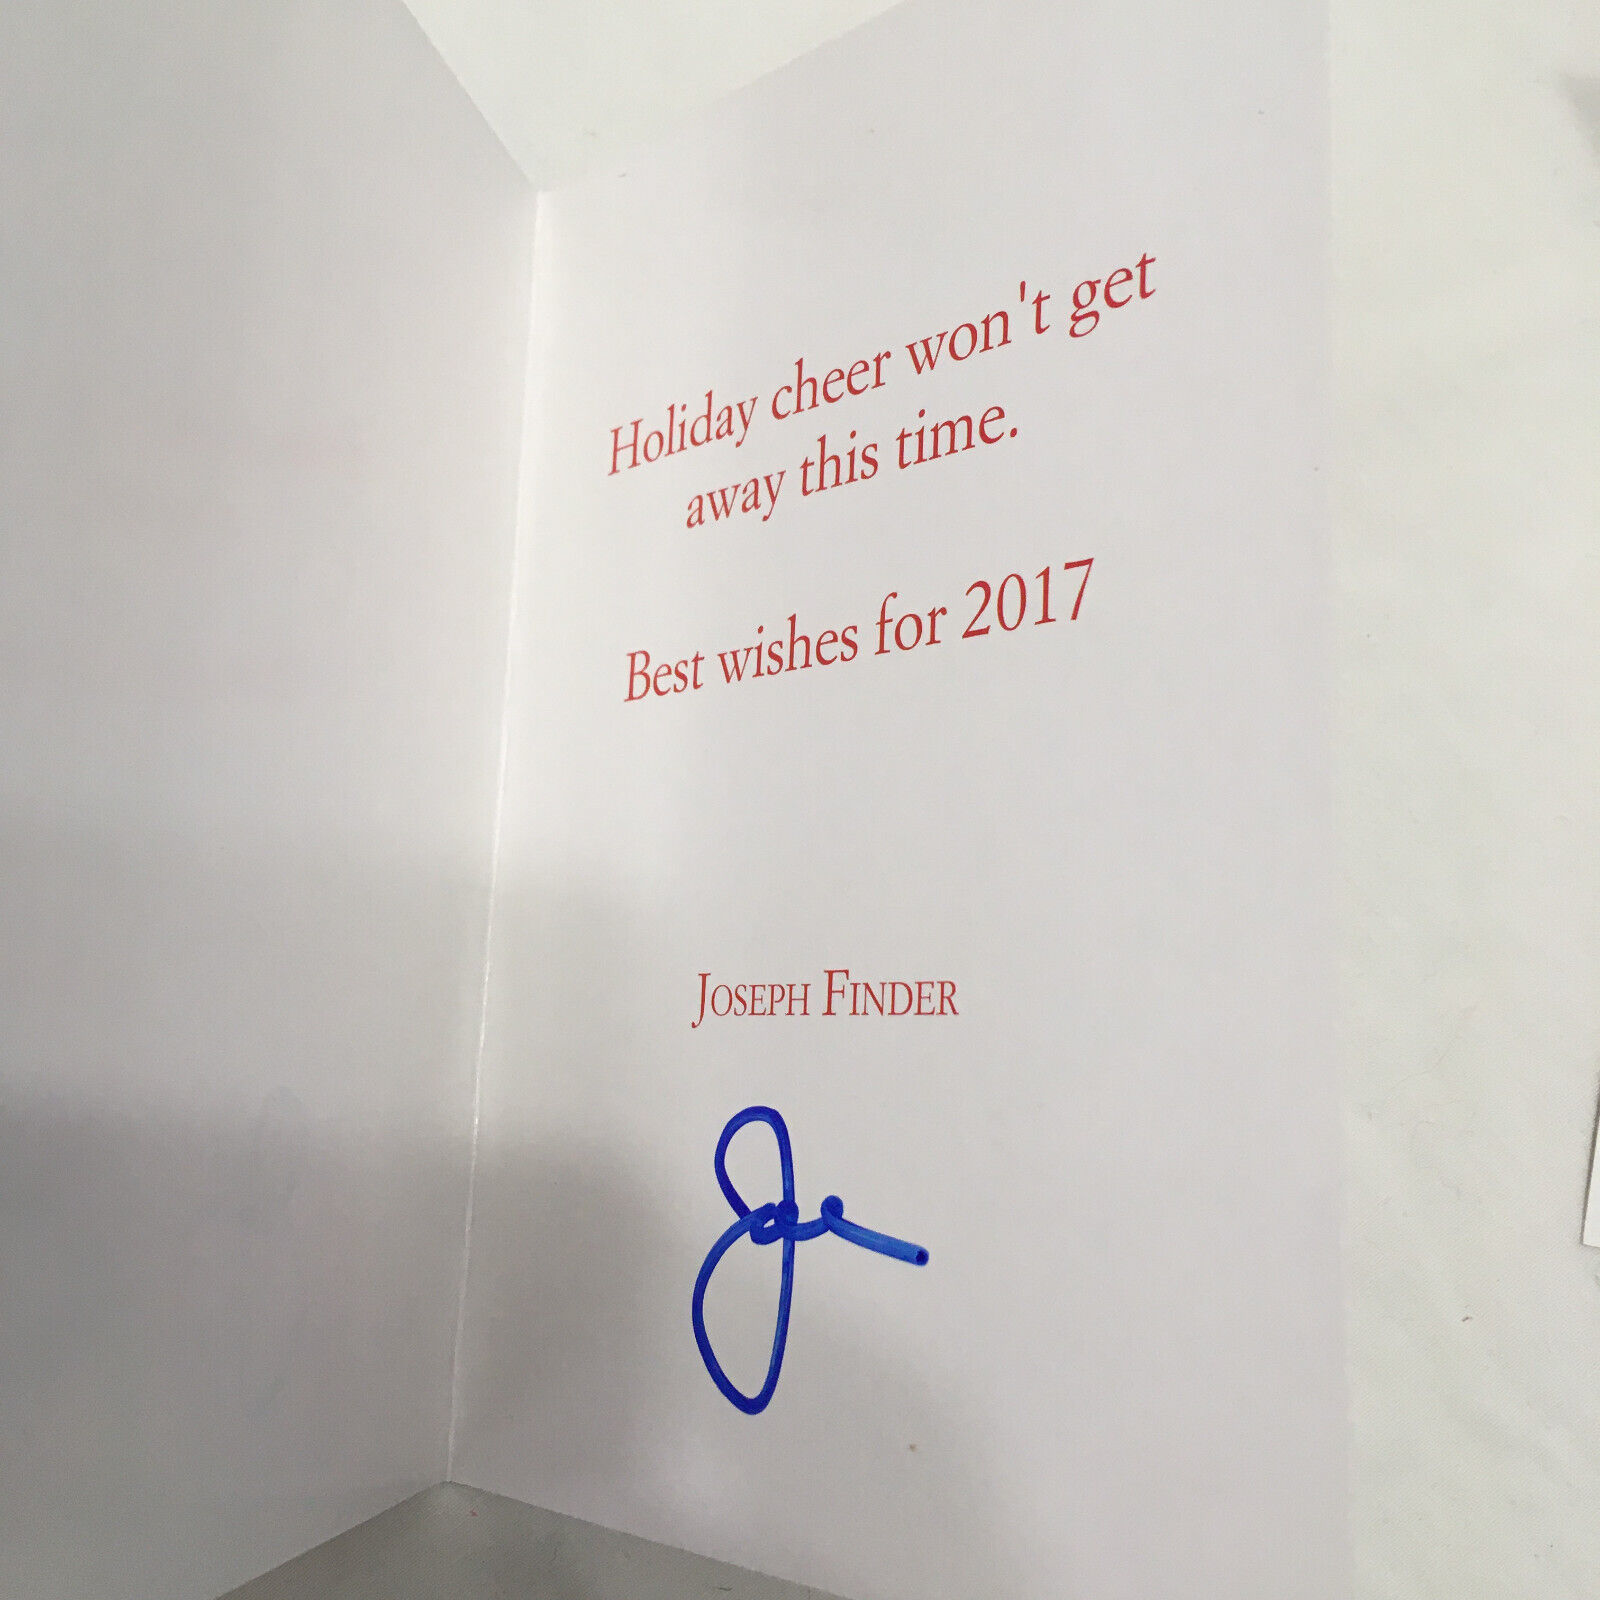 Holiday cheer won't get
away this time.
Best wishes for 2017
JOSEPH FINDER
Joe